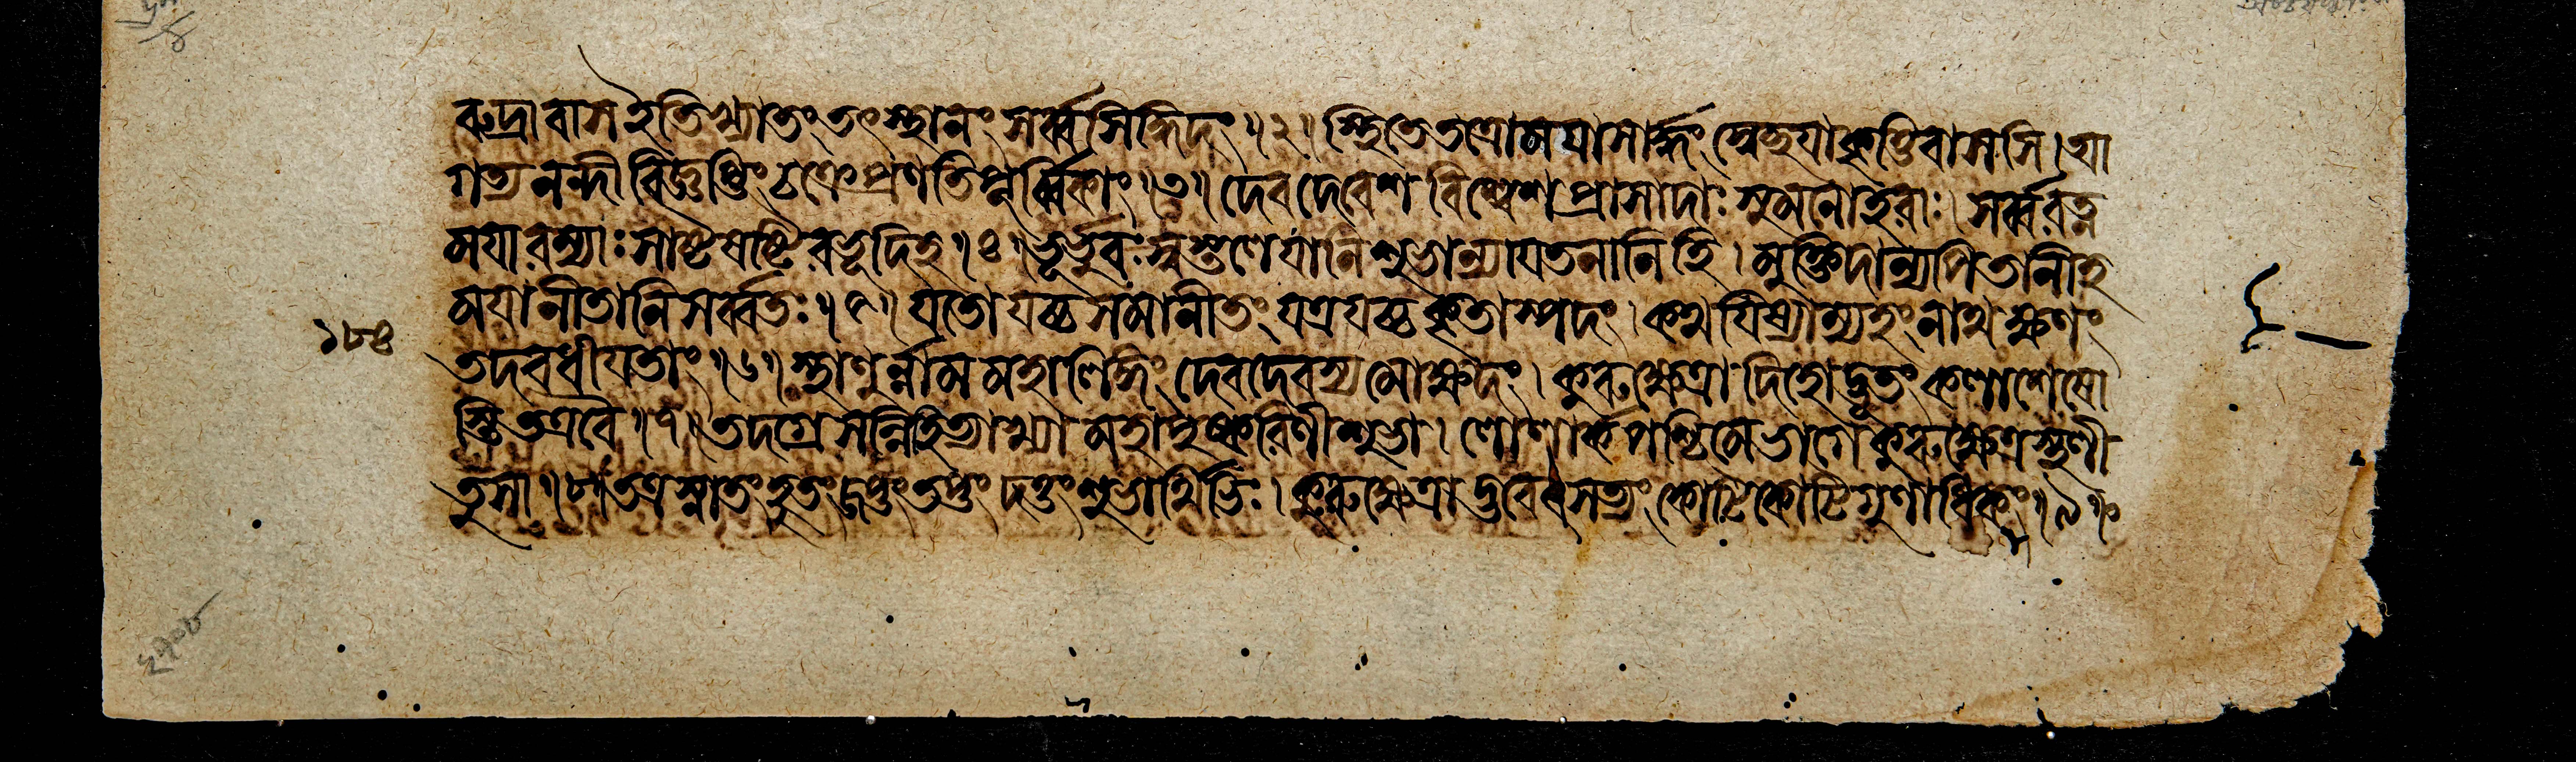 রুদ্রাবাসইতিখ্যাতং তৎস্থানং সর্ব্বসিদ্ধিদং ॥২॥ স্থিতে তত্রোময়াসার্দ্ধং স্বেচ্ছয়াকৃত্তিবাসসি। আ
গত্য নন্দী বিজ্ঞপ্তিং চক্রে প্রণতিপূর্ব্বিকাং ॥৩॥ দেবদেবেশ বিশ্বেশ প্রাসাদাঃ সুমনোহরাঃ। সর্ব্বরত্ন
ময়া রম্যাঃ সাষ্টষষ্টিরভূদিহ ॥৪॥ ভূর্ভুবঃস্বস্তলে যানি শুভান্যায়তনানি হি। মুক্তিদান্যপি তানীহ
ময়ানীতানি সর্ব্বতঃ ॥৫॥ যতো যচ্চ সমানীতং যত্র যচ্চ কৃতাস্পদং। কথয়িষ্যাম্যহং নাথ ক্ষণং
১৮৪
তদবধীয়তাং ॥৬॥ স্থাণুর্ন্নাম মহালিঙ্গং দেবদেবস্য মোক্ষদং। কুরুক্ষেত্রাদিহোদ্ভূতং কলাশেষো
স্তি তত্র বৈ ॥৭॥ তদগ্রে সন্নিহিত্যাখ্যা মহাপুষ্করিণী শুভা। লোলার্কপশ্চিমে ভাগে কুরুক্ষেত্রস্থলী
তু সা ॥৮॥ তত্র স্নাতং হুতং জপ্তং তপ্তং দত্তং শুভার্থিভিঃ। কুরুক্ষেত্রাদ্ভবেৎ সত্যং কোটিকোটিগুণাধিকং ॥৯॥